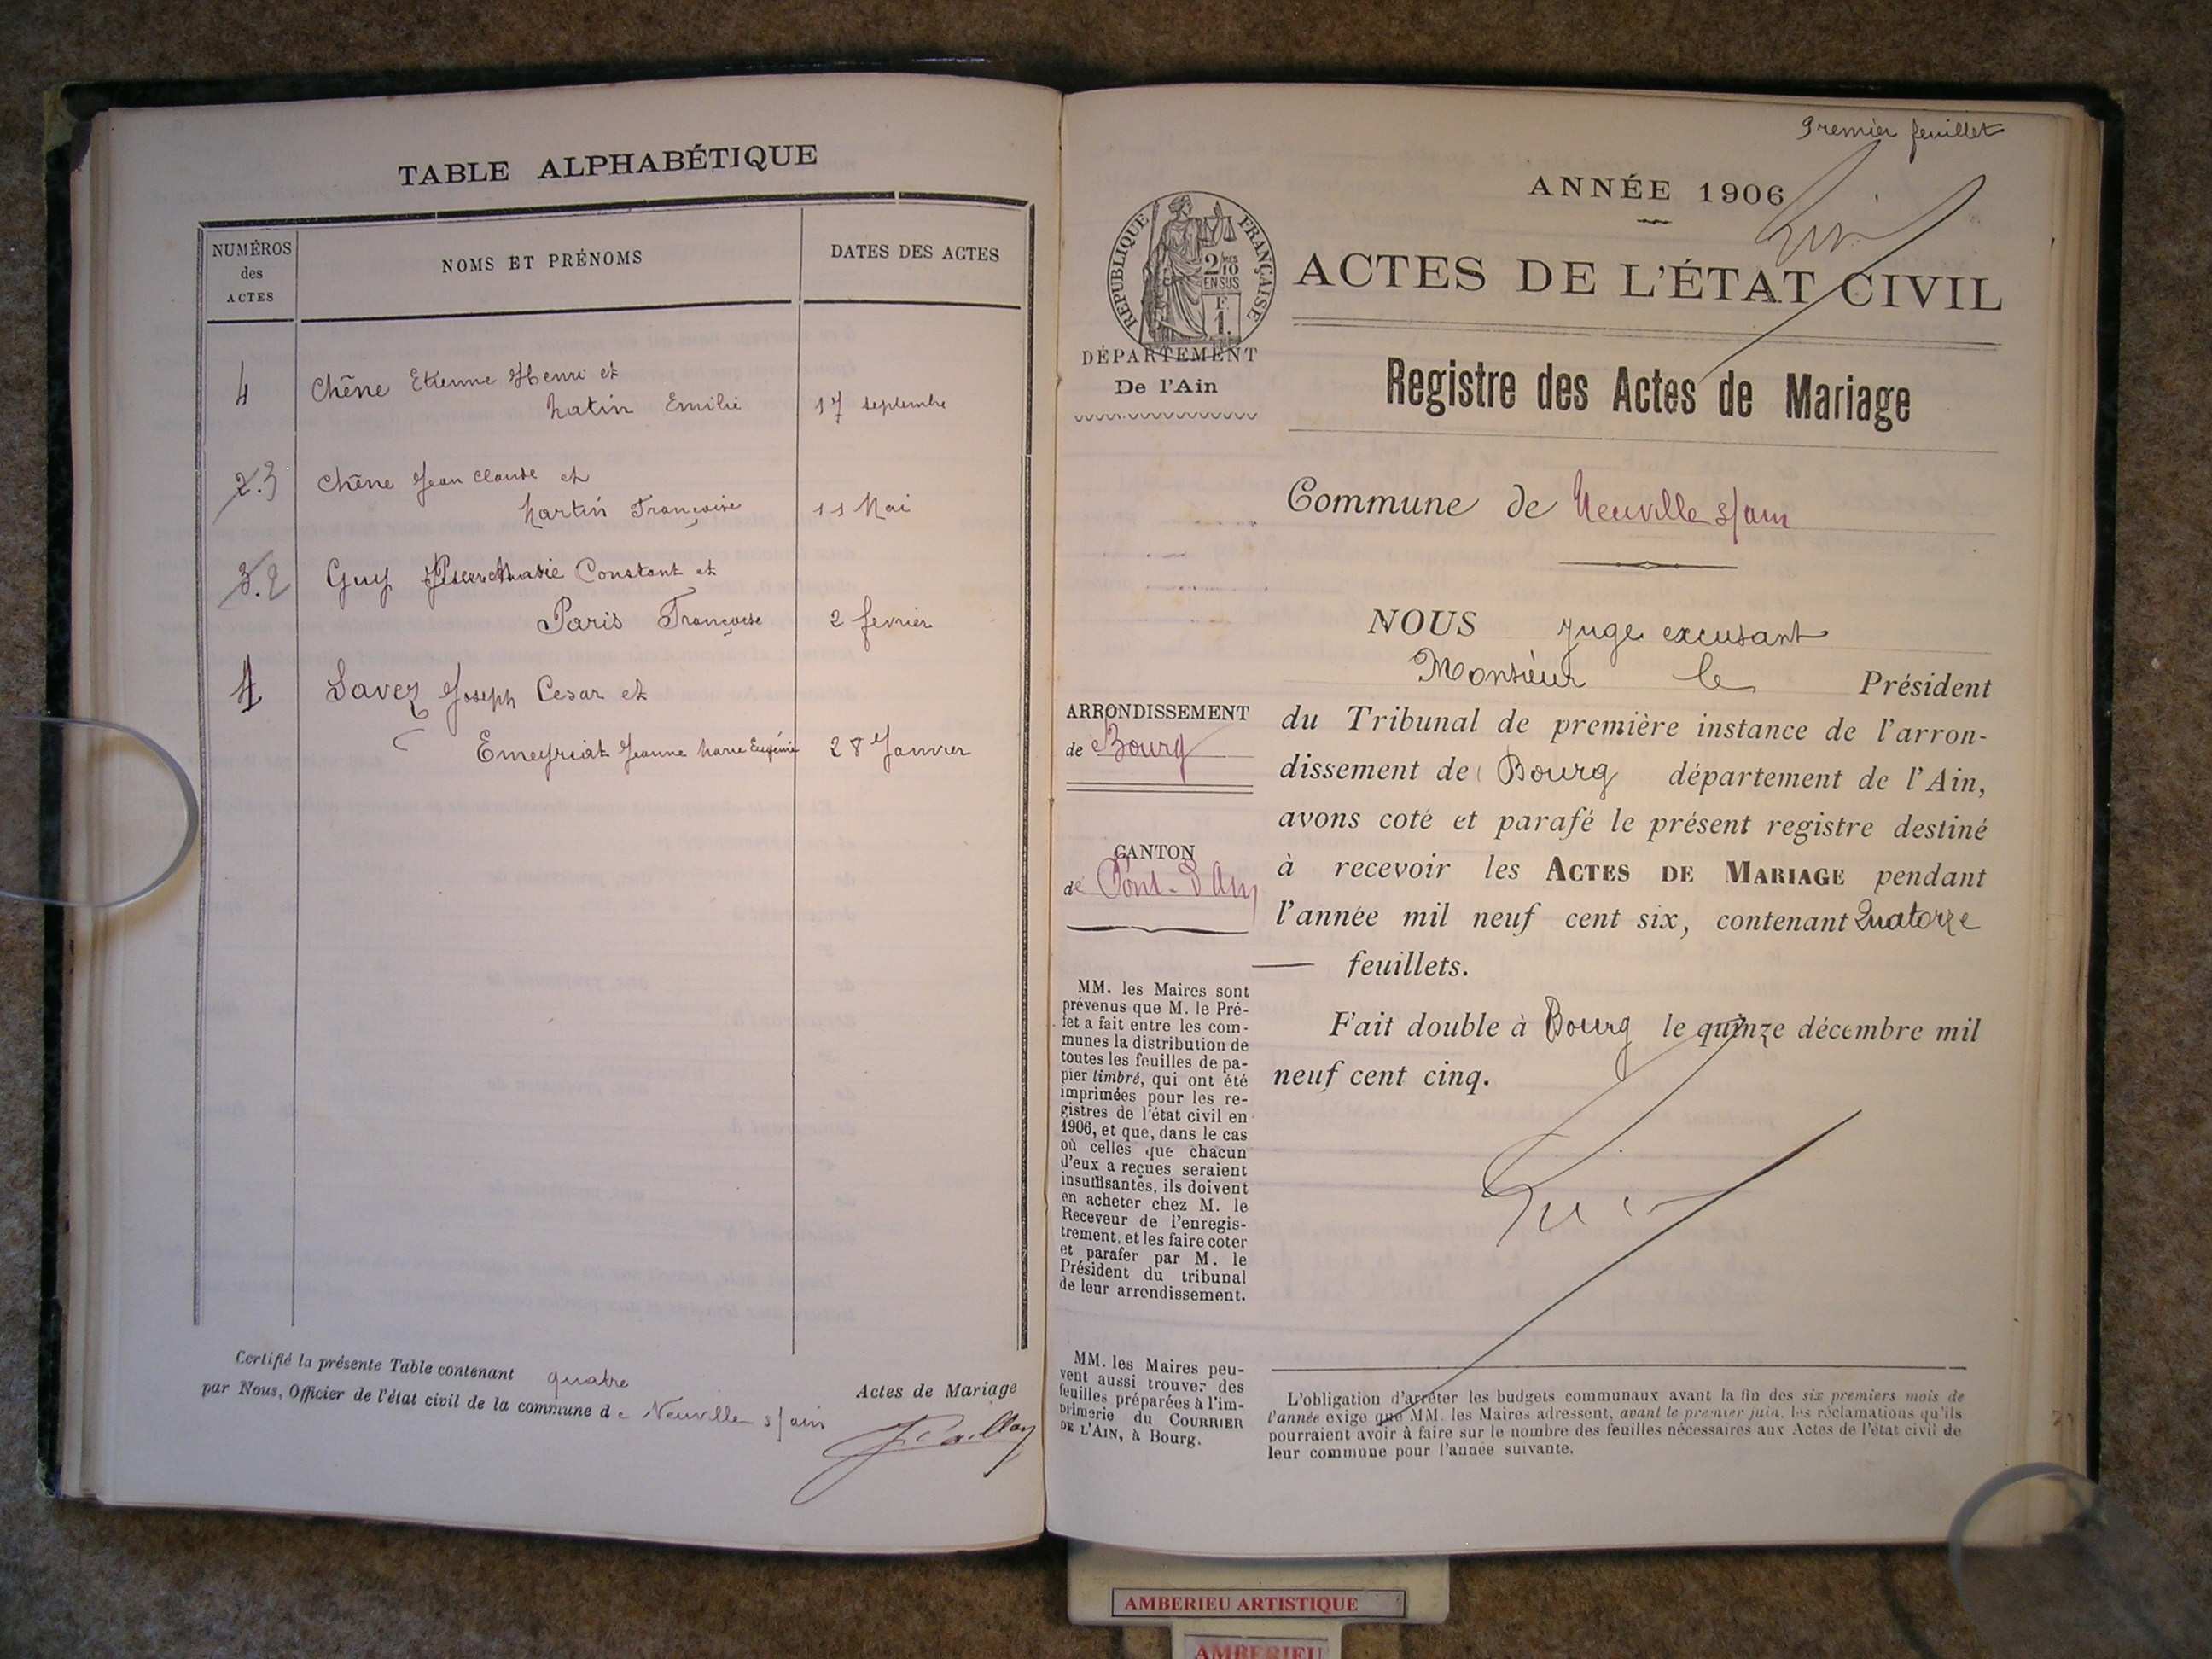 TABLE ALPHABÉTIQUE
NUMÉROS
des
ACTES
NOMS ET PRÉNOMS
DATES DES ACTES
4
Chêne Etienne Henri et
Emilie
17 septembre
2.3
Chêne Jean Claude et
Martin Françoise
11 Mai
3.2
Guy Pierre Marie Constant et
Paris Françoise
2 fevrier
1
Savez Joseph Cesar et
Emeyriat Jeanne Marie Eugénie
28 Janvier
Certifié la présente Table contenant quatre Actes de Mariage
par Nous, Officier de l'état civil de la commune de Neuville s/ain
Premier feuillet
ANNÉE 1906
RÉPUBLIQUE FRANÇAISE
2/10
EN SUS
F
1.
ACTES DE L'ÉTAT CIVIL
DÉPARTEMENT
De l'Ain
Registre des Actes de Mariage
Commune de Neuville s/ain
NOUS juge excusant
Monsieur le Président
du Tribunal de première instance de l'arron-
dissement de Bourg département de l'Ain,
avons coté et parafé le présent registre destiné
à recevoir les ACTES DE MARIAGE pendant
l'année mil neuf cent six, contenant Quatorze
— feuillets.
Fait double à Bourg le quinze décembre mil
neuf cent cinq.
ARRONDISSEMENT
de Bourg
CANTON
de Pont-d'Ain
MM. les Maires sont
prévenus que M. le Pré-
fet a fait entre les com-
munes la distribution de
toutes les feuilles de pa-
pier timbré, qui ont été
imprimées pour les re-
gistres de l'état civil en
1906, et que, dans le cas
où celles que chacun
d'eux a reçues seraient
insuffisantes, ils doivent
en acheter chez M. le
Receveur de l'enregis-
trement, et les faire coter
et parafer par M. le
Président du tribunal
de leur arrondissement.
MM. les Maires peu-
vent aussi trouver des
feuilles préparées à l'im-
primerie du COURRIER
DE L'AIN, à Bourg.
L'obligation d'arrêter les budgets communaux avant la fin des six premiers mois de
l'année exige que MM. les Maires adressent, avant le premier juin, les réclamations qu'ils
pourraient avoir à faire sur le nombre des feuilles nécessaires aux Actes de l'état civil de
leur commune pour l'année suivante.
AMBERIEU ARTISTIQUE
AMBERIEU